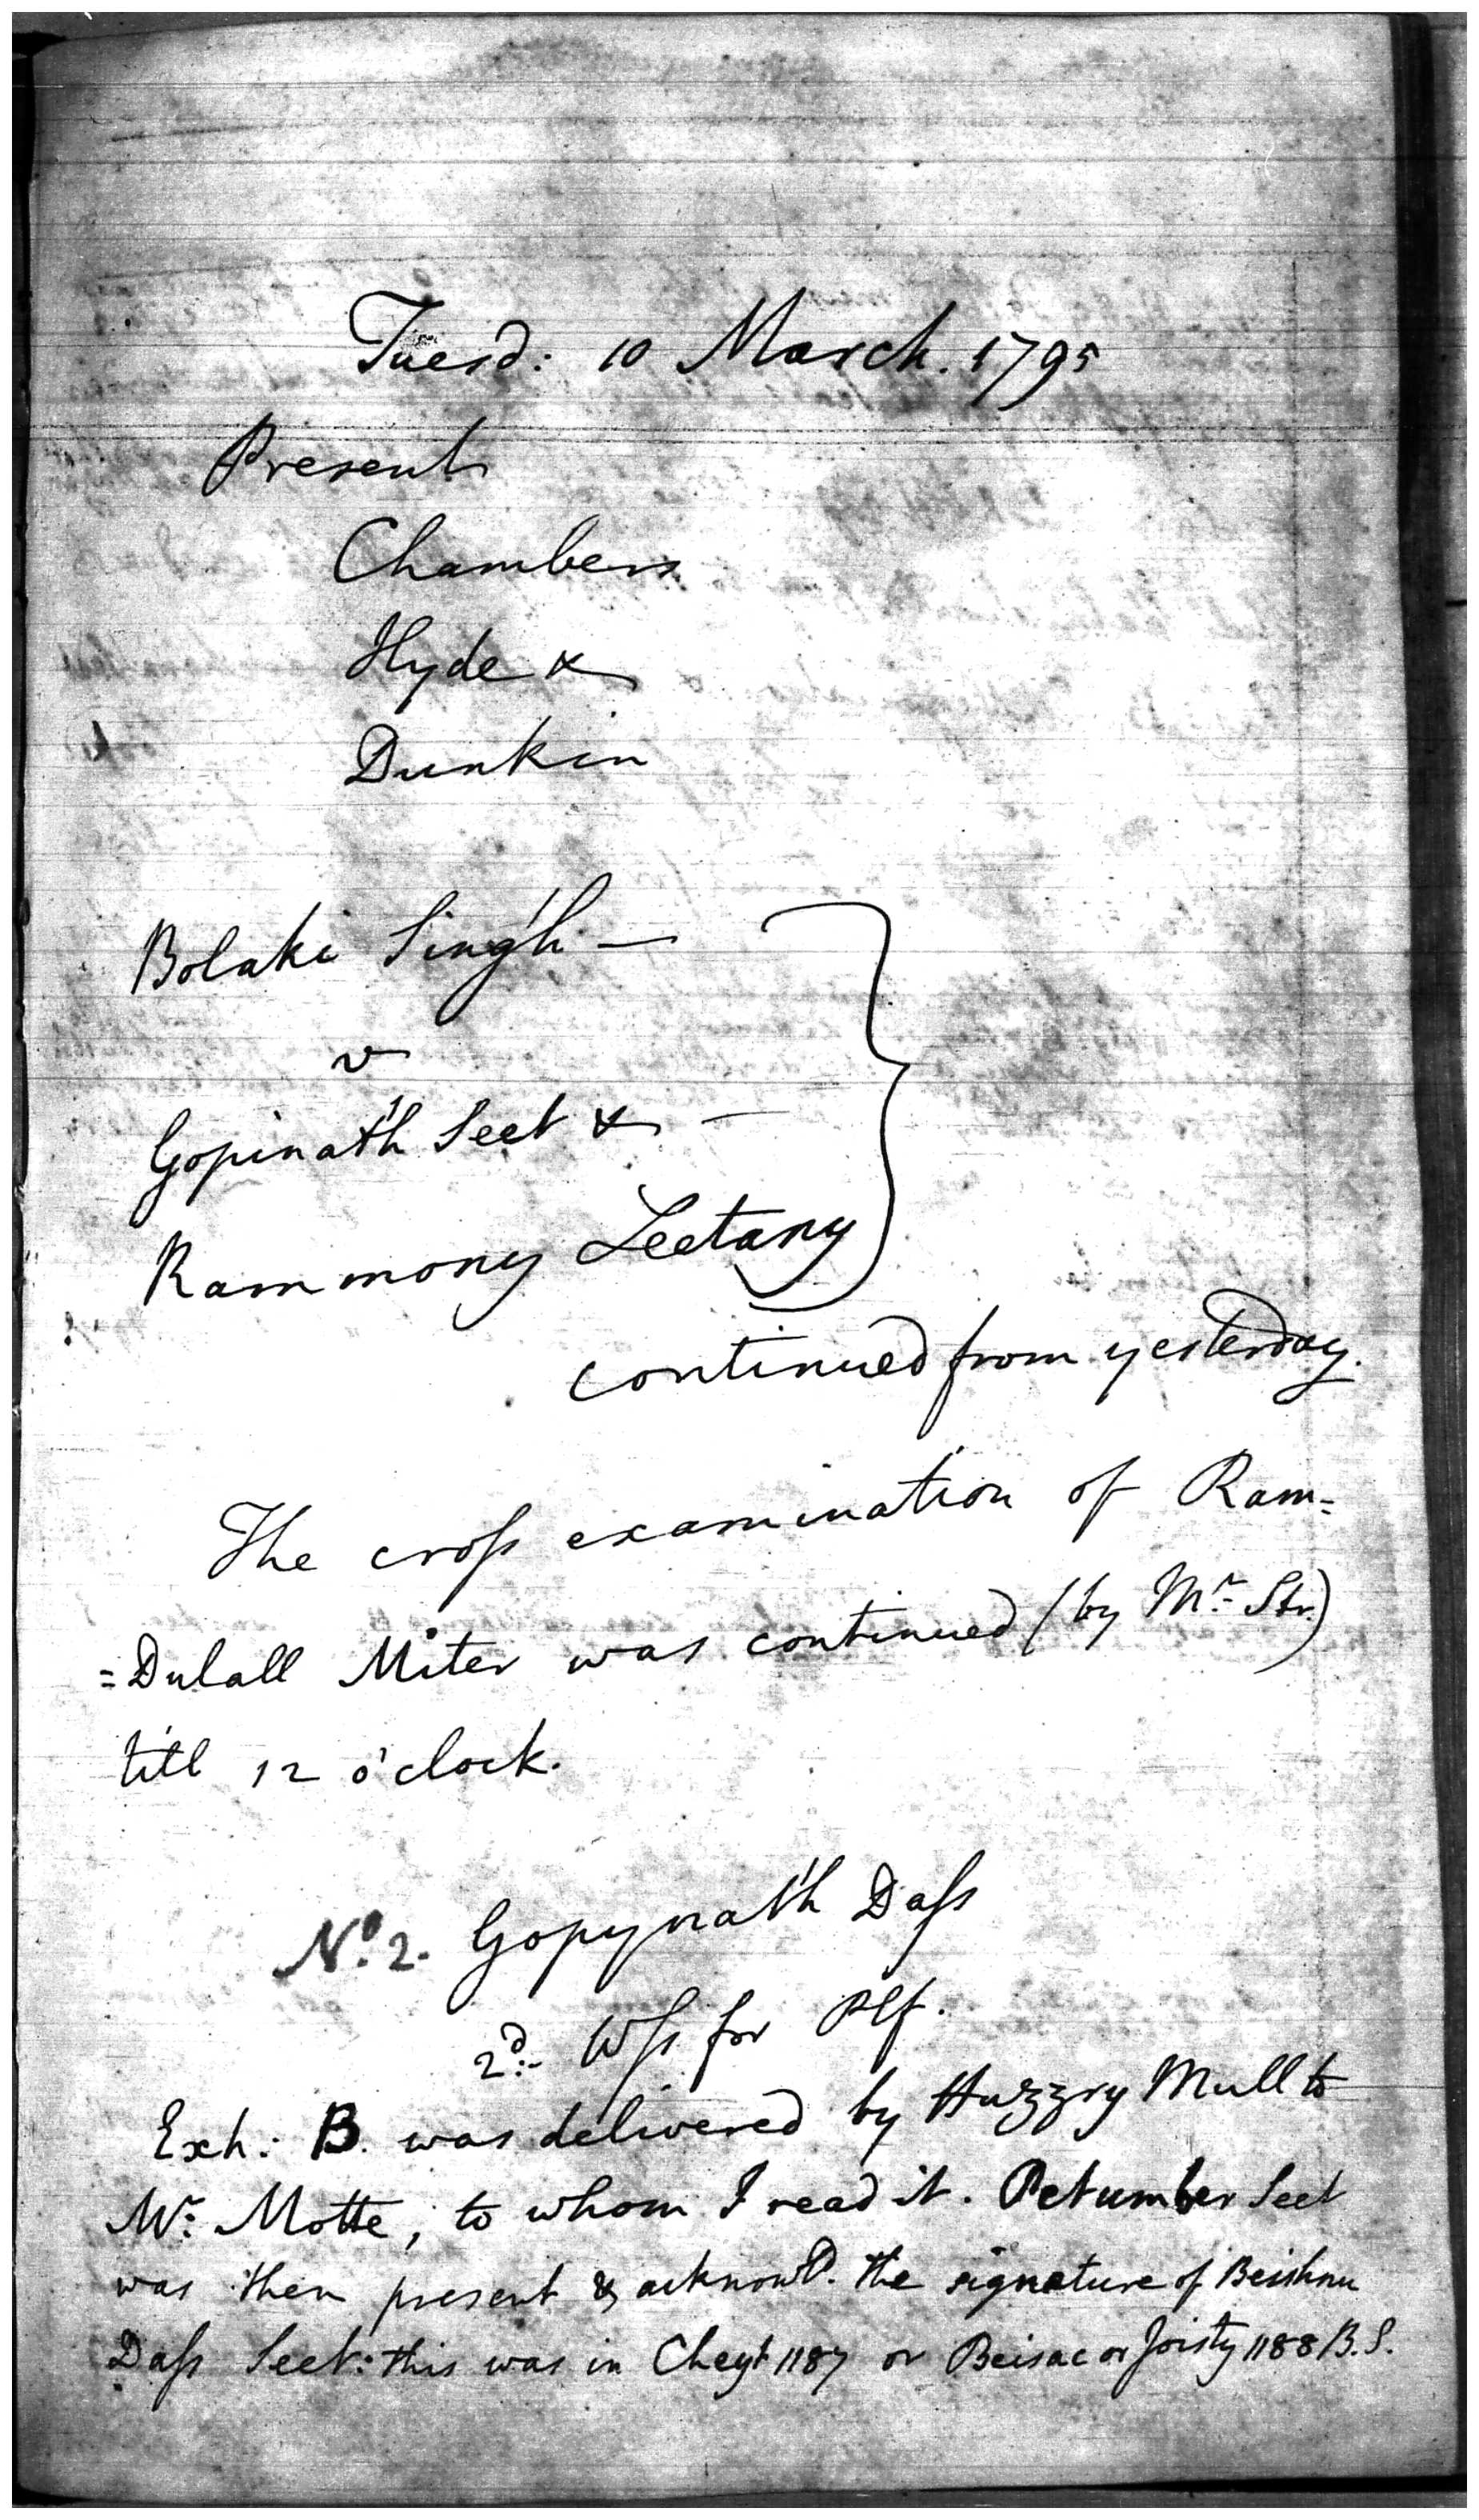 Tuesd: 10 March. 1795
Present
Chambers
Hyde &
Dunkin
Bolaki Singh —
v
Gopinath Seet & —
Rammony Seetany
continued from yesterday.
The cross examination of Ram=
=Dulall Miter was continued (by Mr. Str.)
till 12 o'clock.
No. 2. Gopynath Dass
2d. Wss for Plf.
Exh: B. was delivered by Huzzry Mull to
Mr. Motte, to whom I read it. Petumber Seet
was then present & acknowd. the signature of Beishnu
Dass Seet: this was in Cheyt 1187 or Beisac or Joisty 1188 B.S.